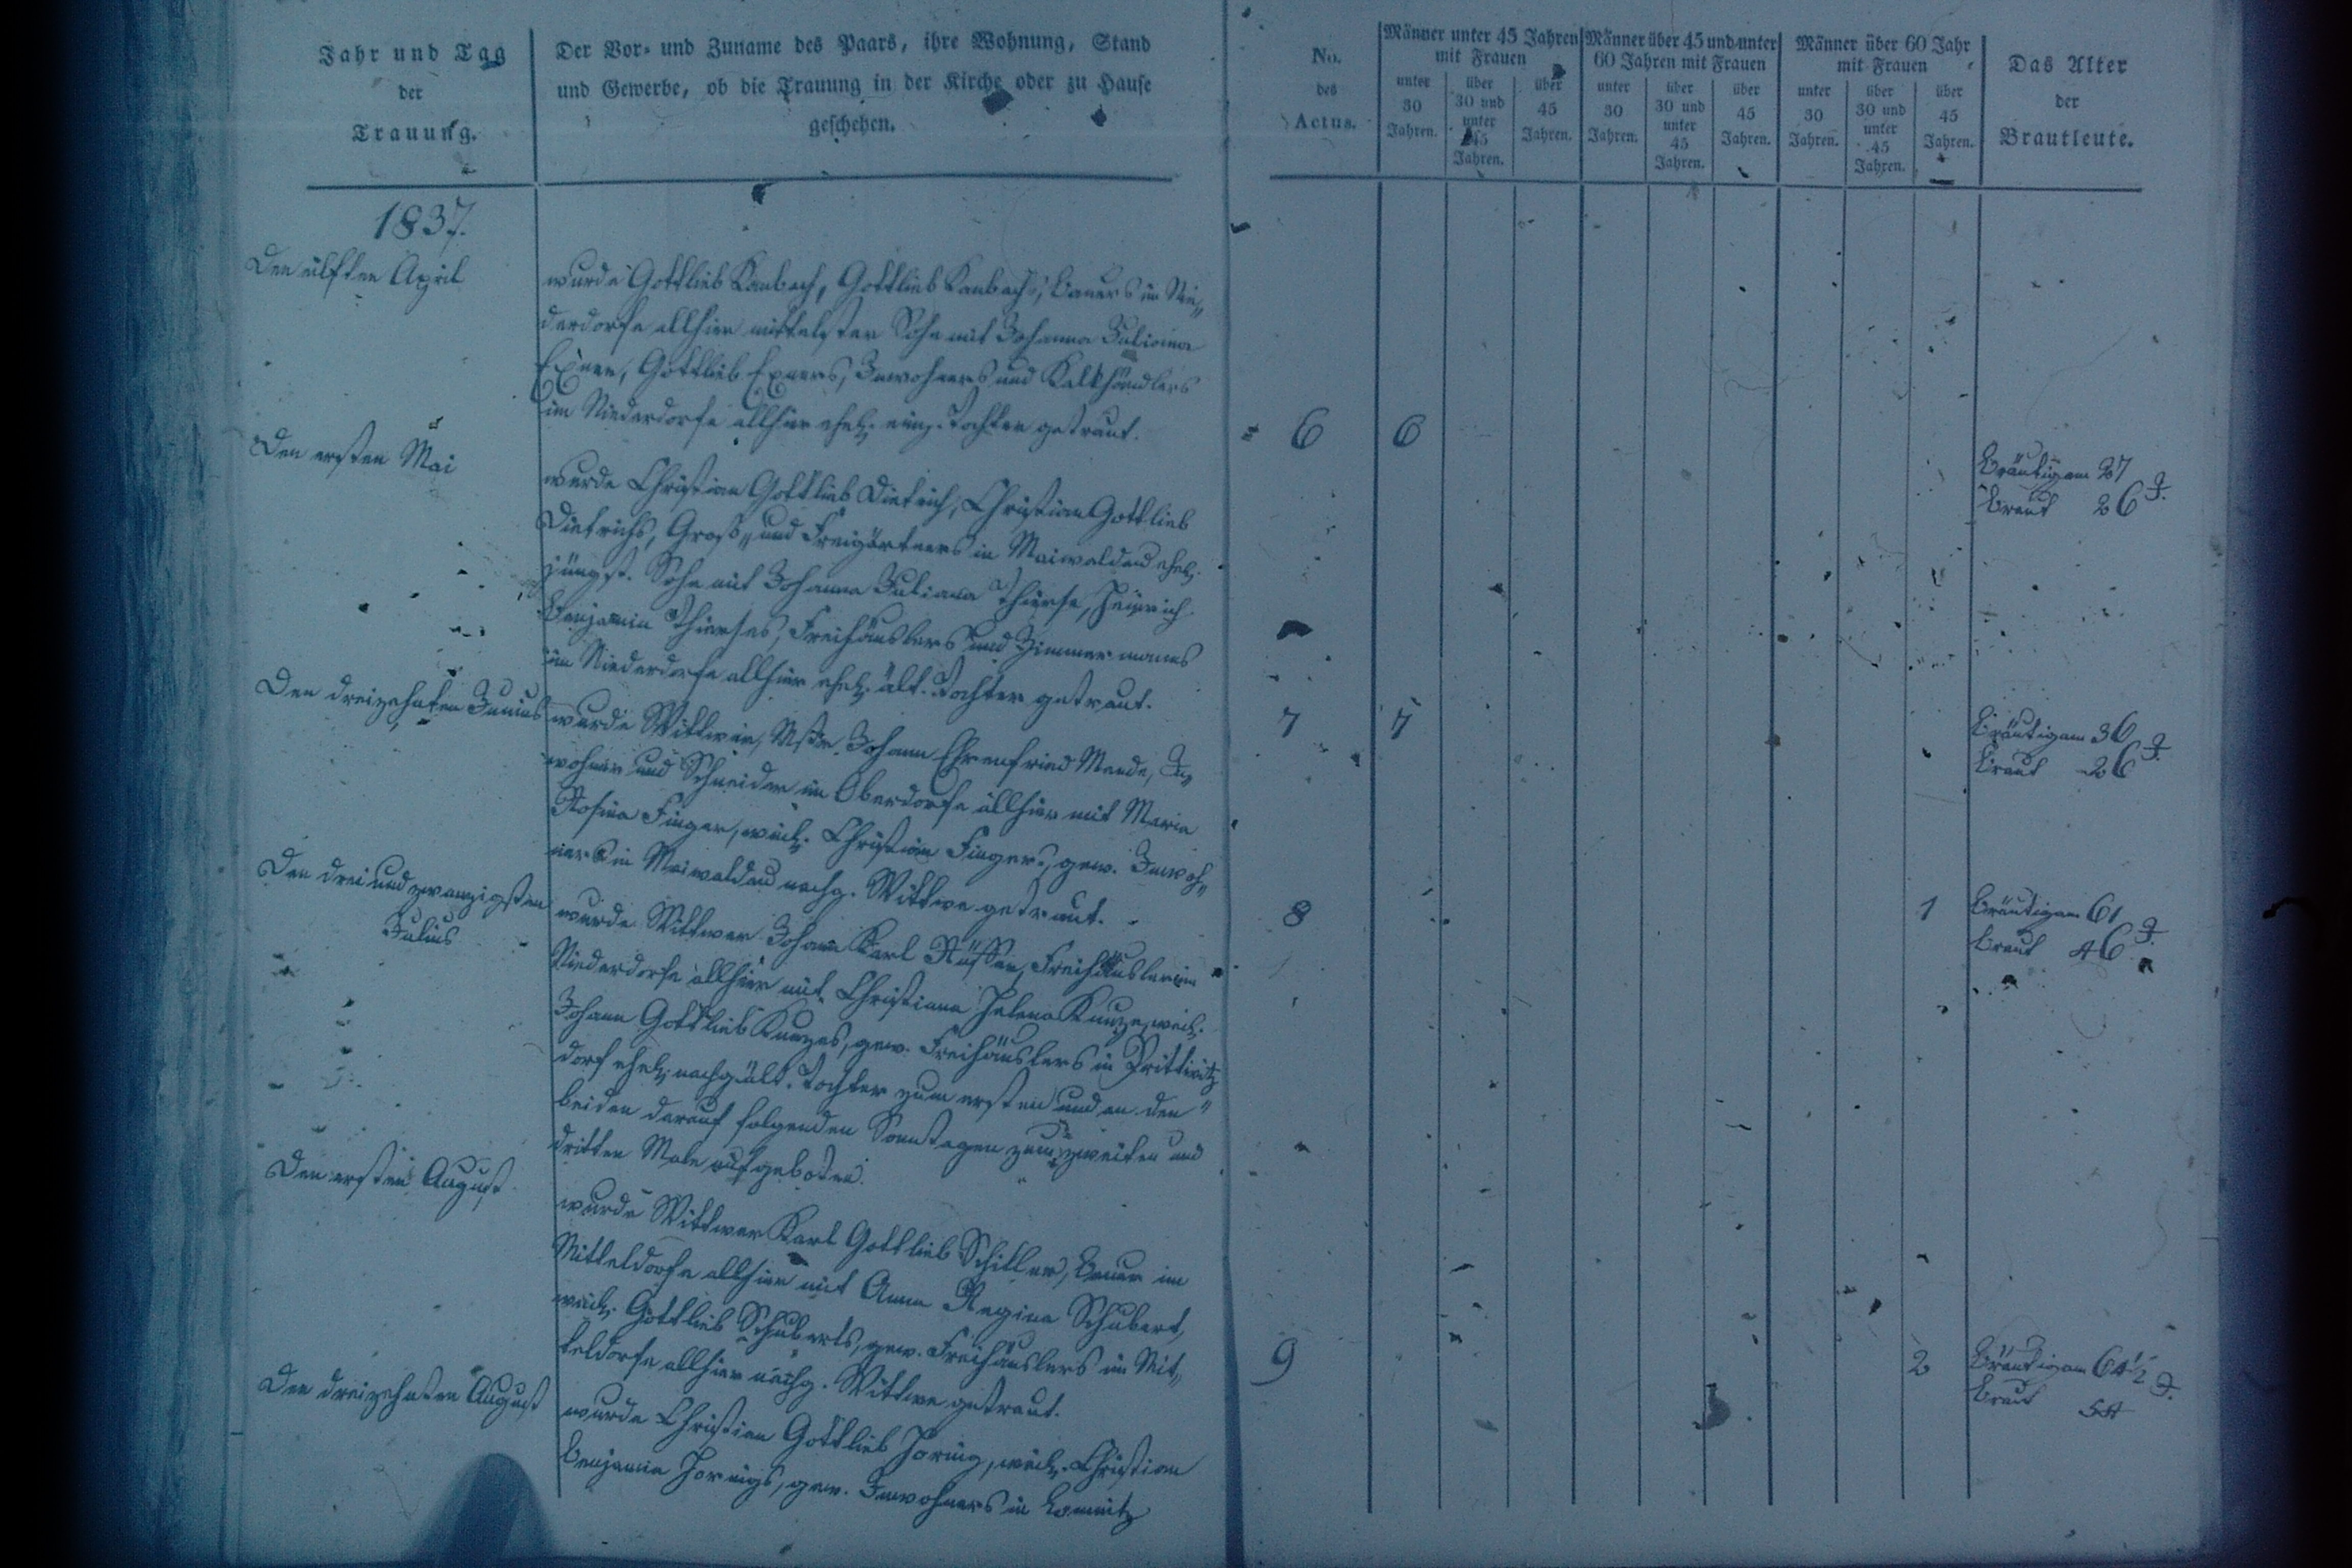 Jahr und Tag
der
Trauung.
Der Vor- und Zuname des Paars, ihre Wohnung, Stand
und Gewerbe, ob die Trauung in der Kirche oder zu Hause
geschehen.
No.
des
Actus.
Männer unter 45 Jahren
mit Frauen
unter
30
Jahren.
über
30 und
unter
45
Jahren.
über
45
Jahren.
Männer über 45 und unter
60 Jahren mit Frauen
unter
30
Jahren.
über
30 und
unter
45
Jahren.
über
45
Jahren.
Männer über 60 Jahr
mit Frauen
unter
30
Jahren.
über
30 und
unter
45
Jahren.
über
45
Jahren.
Das Alter
der
Brautleute.
1837.
Den eilften April
wurde Gottlieb Kambach, Gottlieb Kambachs, Bauers im Nie„
derdorfe allhier mittelster Sohn mit Johanna Juliana
Exner, Gottlieb Exners, Inwohners und Kalkhändlers
im Niederdorfe allhier ehel. einz. Tochter getraut.
6 6
Bräutigam 27
Braut 26 J.
Den ersten Mai
wurde Christian Gottlieb Dietrich, Christian Gottlieb
Dietrichs, Groß„ und Freigärtners in Maiwaldau ehel.
jüngst. Sohn mit Johanna Juliana Thierse, Heinrich
Benjamin Thierses, Freihäuslers und Zimmermanns
im Niederdorfe allhier ehel. ält. Tochter getraut.
7 7
Bräutigam 30
Braut 26 J.
Den dreizehnten Junius
wurde Wittwer, Mstr. Johann Ehrenfried Mende, In„
wohner und Schneider im Oberdorfe allhier mit Maria
Rosina Finger, weil. Christian Fingers, gew. Inwoh„
ners in Maiwaldau nachg. Wittwe getraut.
8 1
Bräutigam 61
Braut 46 J.
Den drei und zwanzigsten
Julius
wurde Wittwer Johann Karl Rüffer, Freihäusler im
Niederdorfe allhier mit Christiana Helena Kunze, weil.
Johann Gottlieb Kunzes, gew. Freihäuslers in Prittwitz„
dorf ehel. nachg. ält. Tochter zum ersten und an den
beiden darauf folgenden Sonntagen zum zweiten und
dritten Male aufgeboten.
Den ersten August
wurde Wittwer Karl Gottlieb Schiller, Bauer im
Mitteldorfe allhier mit Anna Regina Schubert,
weil. Gottlieb Schuberts, gew. Freihäuslers im Mit„
teldorfe allhier nachg. Wittwe getraut.
9 2
Bräutigam 64½ J.
Braut 54
Den dreizehnten August
wurde Christian Gottlieb Hornig, weil. Christian
Benjamin Hornigs, gew. Inwohners in Lomnitz